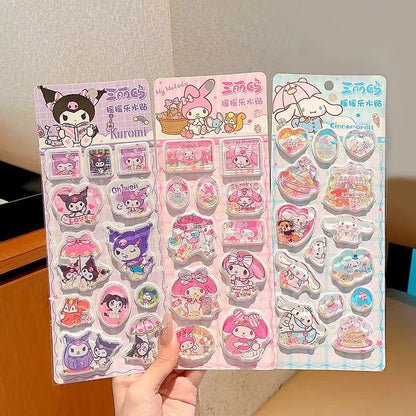 三丽鸥
摇摇乐水贴
Kuromi
My Melody
三丽鸥
摇摇乐水贴
三丽鸥
摇摇乐水贴
Cinnamoroll